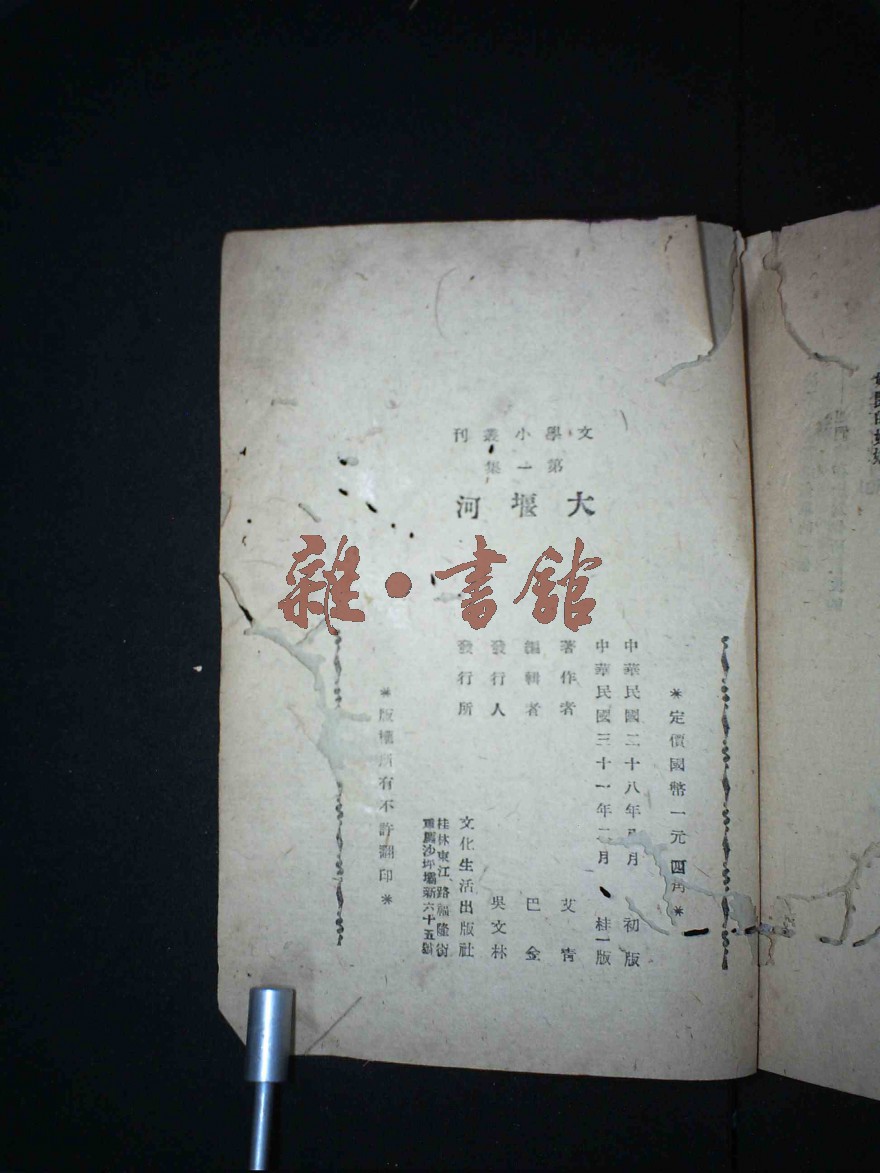 文學小叢刊
第一集
大堰河
雜·書舘
*定價國幣一元四角*
中華民國二十八年 月 初版
中華民國三十一年二月 桂一版
著作者 艾青
編輯者 巴金
發行人 吳文林
發行所 文化生活出版社
桂林東江路福隆街
重慶沙坪壩新六十五號
*版權所有不許翻印*